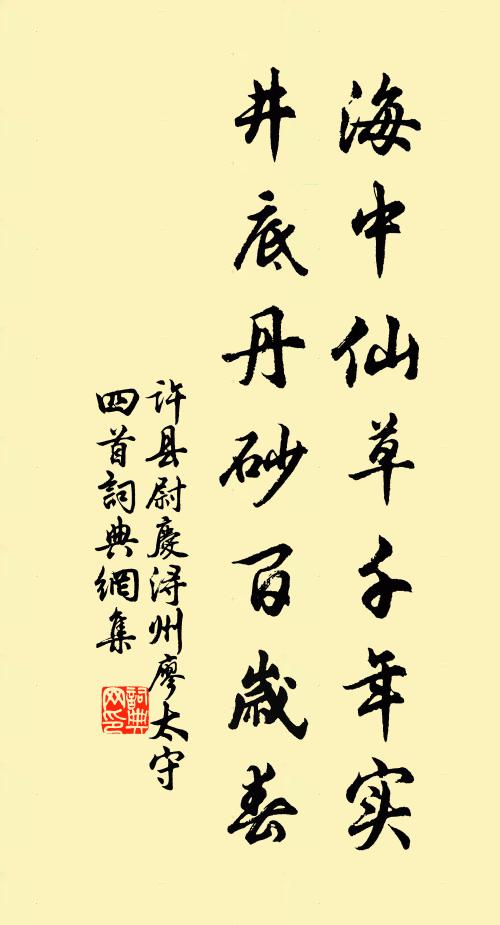 海中仙草千年实
井底丹砂百歲春
许县尉慶浔州廖太守
四首詞典網集
詞典
网印